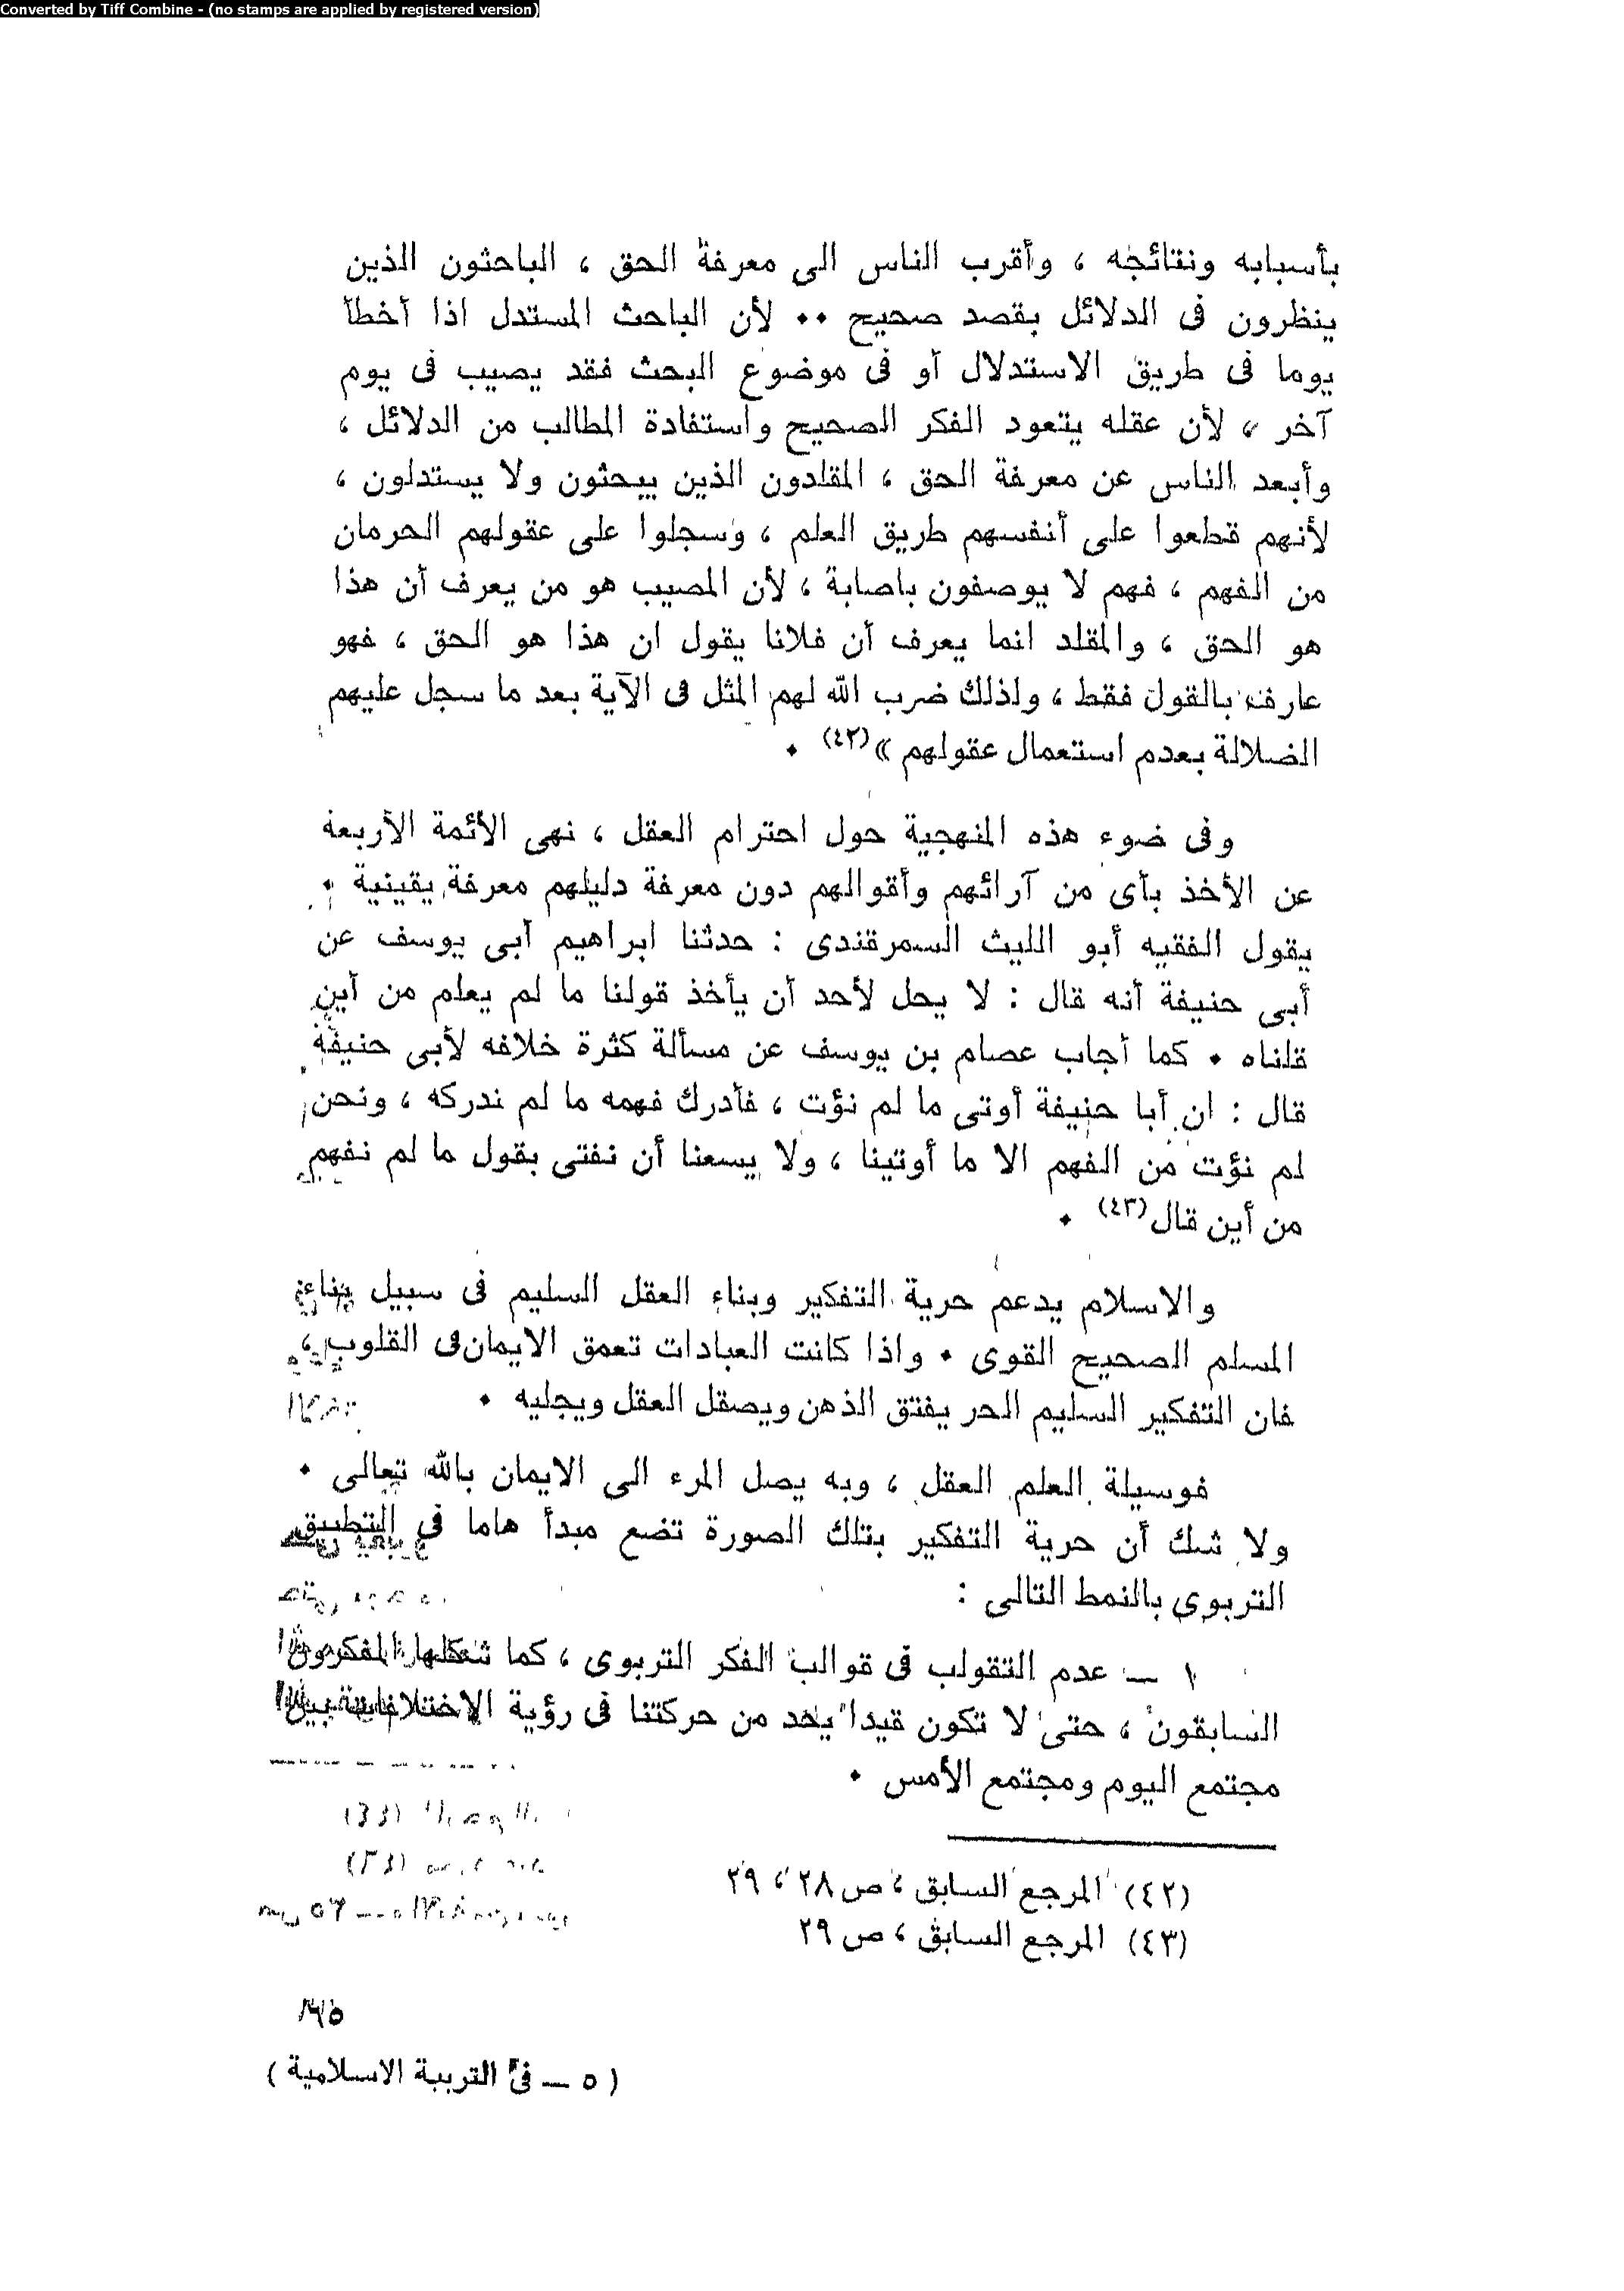 Converted by Tiff Combine - (no stamps are applied by registered version)
بأسبابه ونتائجه ، وأقرب الناس الى معرفة الحق ، الباحثون الذين
ينظرون فى الدلائل بقصد صحيح ٠٠ لأن الباحث المستدل اذا أخطأ
يوما فى طريق الاستدلال أو فى موضوع البحث فقد يصيب فى يوم
آخر ، لأن عقله يتعود الفكر الصحيح واستفادة المطالب من الدلائل ،
وأبعد الناس عن معرفة الحق ، المقلدون الذين يبحثون ولا يستدلون ،
لأنهم قطعوا على أنفسهم طريق العلم ، وسجلوا على عقولهم الحرمان
من الفهم ، فهم لا يوصفون باصابة ، لأن المصيب هو من يعرف أن هذا
هو الحق ، والمقلد انما يعرف أن فلانا يقول ان هذا هو الحق ، فهو
عارف بالقول فقط ، ولذلك ضرب الله لهم المثل فى الآية بعد ما سجل عليهم
الضلالة بعدم استعمال عقولهم »(٤٢) ٠
وفى ضوء هذه المنهجية حول احترام العقل ، نهى الأئمة الأربعة
عن الأخذ بأى من آرائهم وأقوالهم دون معرفة دليلهم معرفة يقينية ٠
يقول الفقيه أبو الليث السمرقندى : حدثنا ابراهيم أبى يوسف عن
أبى حنيفة أنه قال : لا يحل لأحد أن يأخذ قولنا ما لم يعلم من أين
قلناه ٠ كما أجاب عصام بن يوسف عن مسألة كثرة خلافه لأبى حنيفة
قال : ان أبا حنيفة أوتى ما لم نؤت ، فأدرك فهمه ما لم ندركه ، ونحن
لم نؤت من الفهم الا ما أوتينا ، ولا يسعنا أن نفتى بقول ما لم نفهم
من أين قال(٤٣) ٠
والاسلام يدعم حرية التفكير وبناء العقل السليم فى سبيل بناء
المسلم الصحيح القوى ٠ واذا كانت العبادات تعمق الايمان فى القلوب ،
فان التفكير السليم الحر يفتق الذهن ويصقل العقل ويجليه ٠
فوسيلة العلم العقل ، وبه يصل المرء الى الايمان بالله تعالى ٠
ولا شك أن حرية التفكير بتلك الصورة تضع مبدأ هاما فى التطبيق
التربوى بالنمط التالى :
١ — عدم التقولب فى قوالب الفكر التربوى ، كما شكلها المفكرون
السابقون ، حتى لا تكون قيدا يحد من حركتنا فى رؤية الاختلافات بين
مجتمع اليوم ومجتمع الأمس ٠
(٤٢) المرجع السابق ، ص ٢٨ ، ٢٩
(٤٣) المرجع السابق ، ص ٢٩
( ٥ — فى التربية الاسلامية )